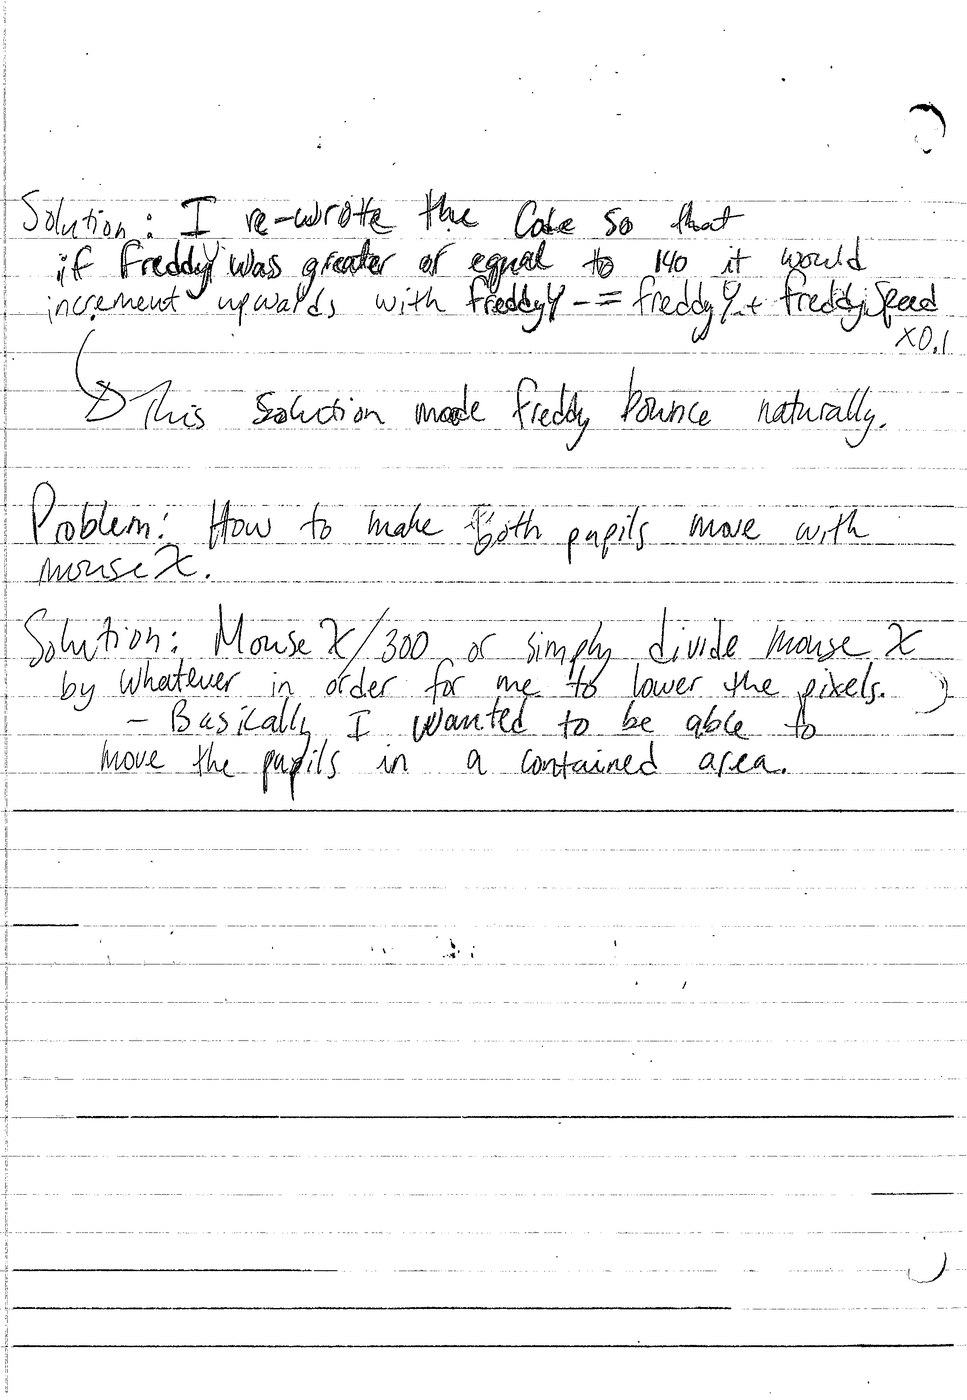 Solution: I re-wrote the Code so that
if freddyY was greater or equal to 140 it would
increment upwards with freddyY -= freddyY + freddySpeed
x0.1
This solution made freddy bounce naturally.
Problem: How to make Both pupils move with
mouse X.
Solution: Mouse X/300 or simply divide mouse X
by whatever in order for me to lower the pixels.
- Basically I wanted to be able to
move the pupils in a contained area.